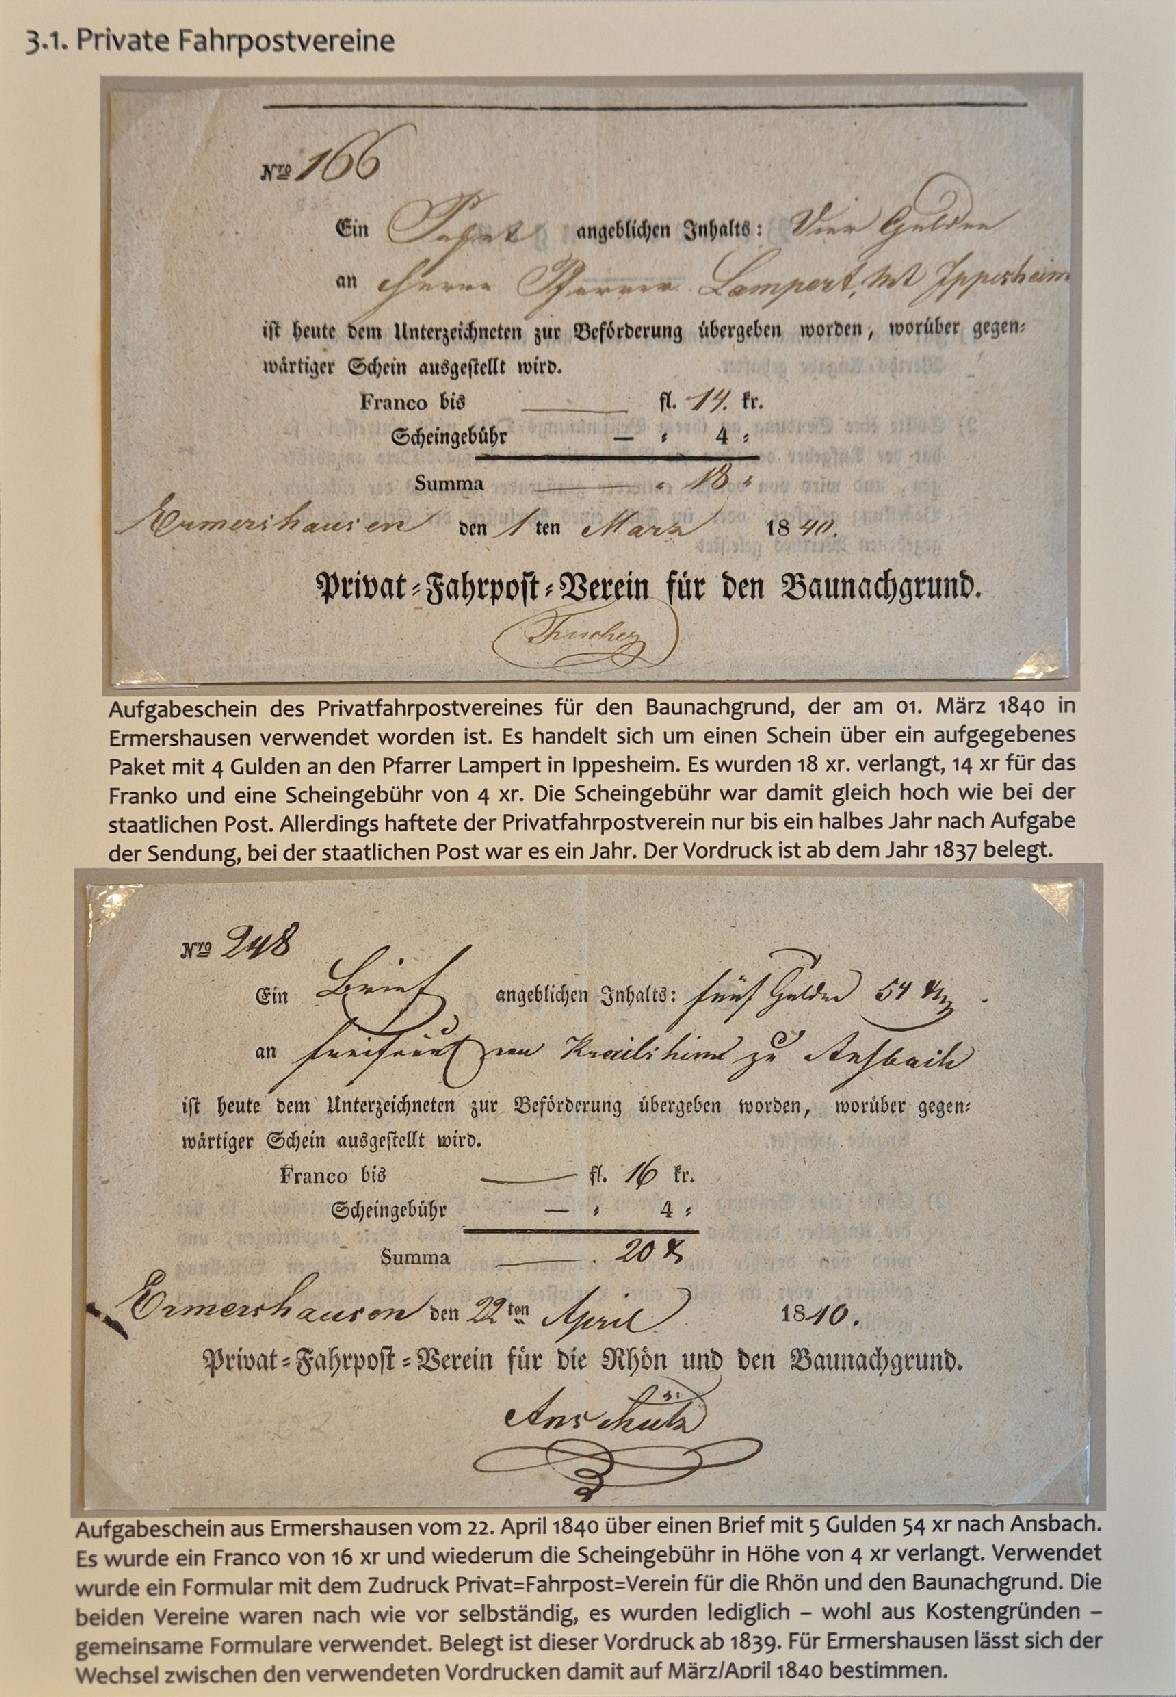 3.1. Private Fahrpostvereine
Nro 166
Ein Paket angeblichen Inhalts: Vier Gulden
an Herrn Pfarrer Lampert, Ippesheim
ist heute dem Unterzeichneten zur Beförderung übergeben worden, worüber gegen=
wärtiger Schein ausgestellt wird.
Franco bis fl. 14. kr.
Scheingebühr — „ 4 „
Summa „ 18 „
Ermershausen den 1 ten März 1840.
Privat=Fahrpost=Verein für den Baunachgrund.
Aufgabeschein des Privatfahrpostvereines für den Baunachgrund, der am 01. März 1840 in
Ermershausen verwendet worden ist. Es handelt sich um einen Schein über ein aufgegebenes
Paket mit 4 Gulden an den Pfarrer Lampert in Ippesheim. Es wurden 18 xr. verlangt, 14 xr für das
Franko und eine Scheingebühr von 4 xr. Die Scheingebühr war damit gleich hoch wie bei der
staatlichen Post. Allerdings haftete der Privatfahrpostverein nur bis ein halbes Jahr nach Aufgabe
der Sendung, bei der staatlichen Post war es ein Jahr. Der Vordruck ist ab dem Jahr 1837 belegt.
Nro 248
Ein Brief angeblichen Inhalts: fünf Gulden 54 xr
an von Krailsheim zu Ansbach
ist heute dem Unterzeichneten zur Beförderung übergeben worden, worüber gegen=
wärtiger Schein ausgestellt wird.
Franco bis — fl. 16 kr.
Scheingebühr — „ 4 „
Summa 20 xr
Ermershausen den 22 ten April 1840.
Privat=Fahrpost=Verein für die Rhön und den Baunachgrund.
Anschütz
Aufgabeschein aus Ermershausen vom 22. April 1840 über einen Brief mit 5 Gulden 54 xr nach Ansbach.
Es wurde ein Franco von 16 xr und wiederum die Scheingebühr in Höhe von 4 xr verlangt. Verwendet
wurde ein Formular mit dem Zudruck Privat=Fahrpost=Verein für die Rhön und den Baunachgrund. Die
beiden Vereine waren nach wie vor selbständig, es wurden lediglich – wohl aus Kostengründen –
gemeinsame Formulare verwendet. Belegt ist dieser Vordruck ab 1839. Für Ermershausen lässt sich der
Wechsel zwischen den verwendeten Vordrucken damit auf März/April 1840 bestimmen.